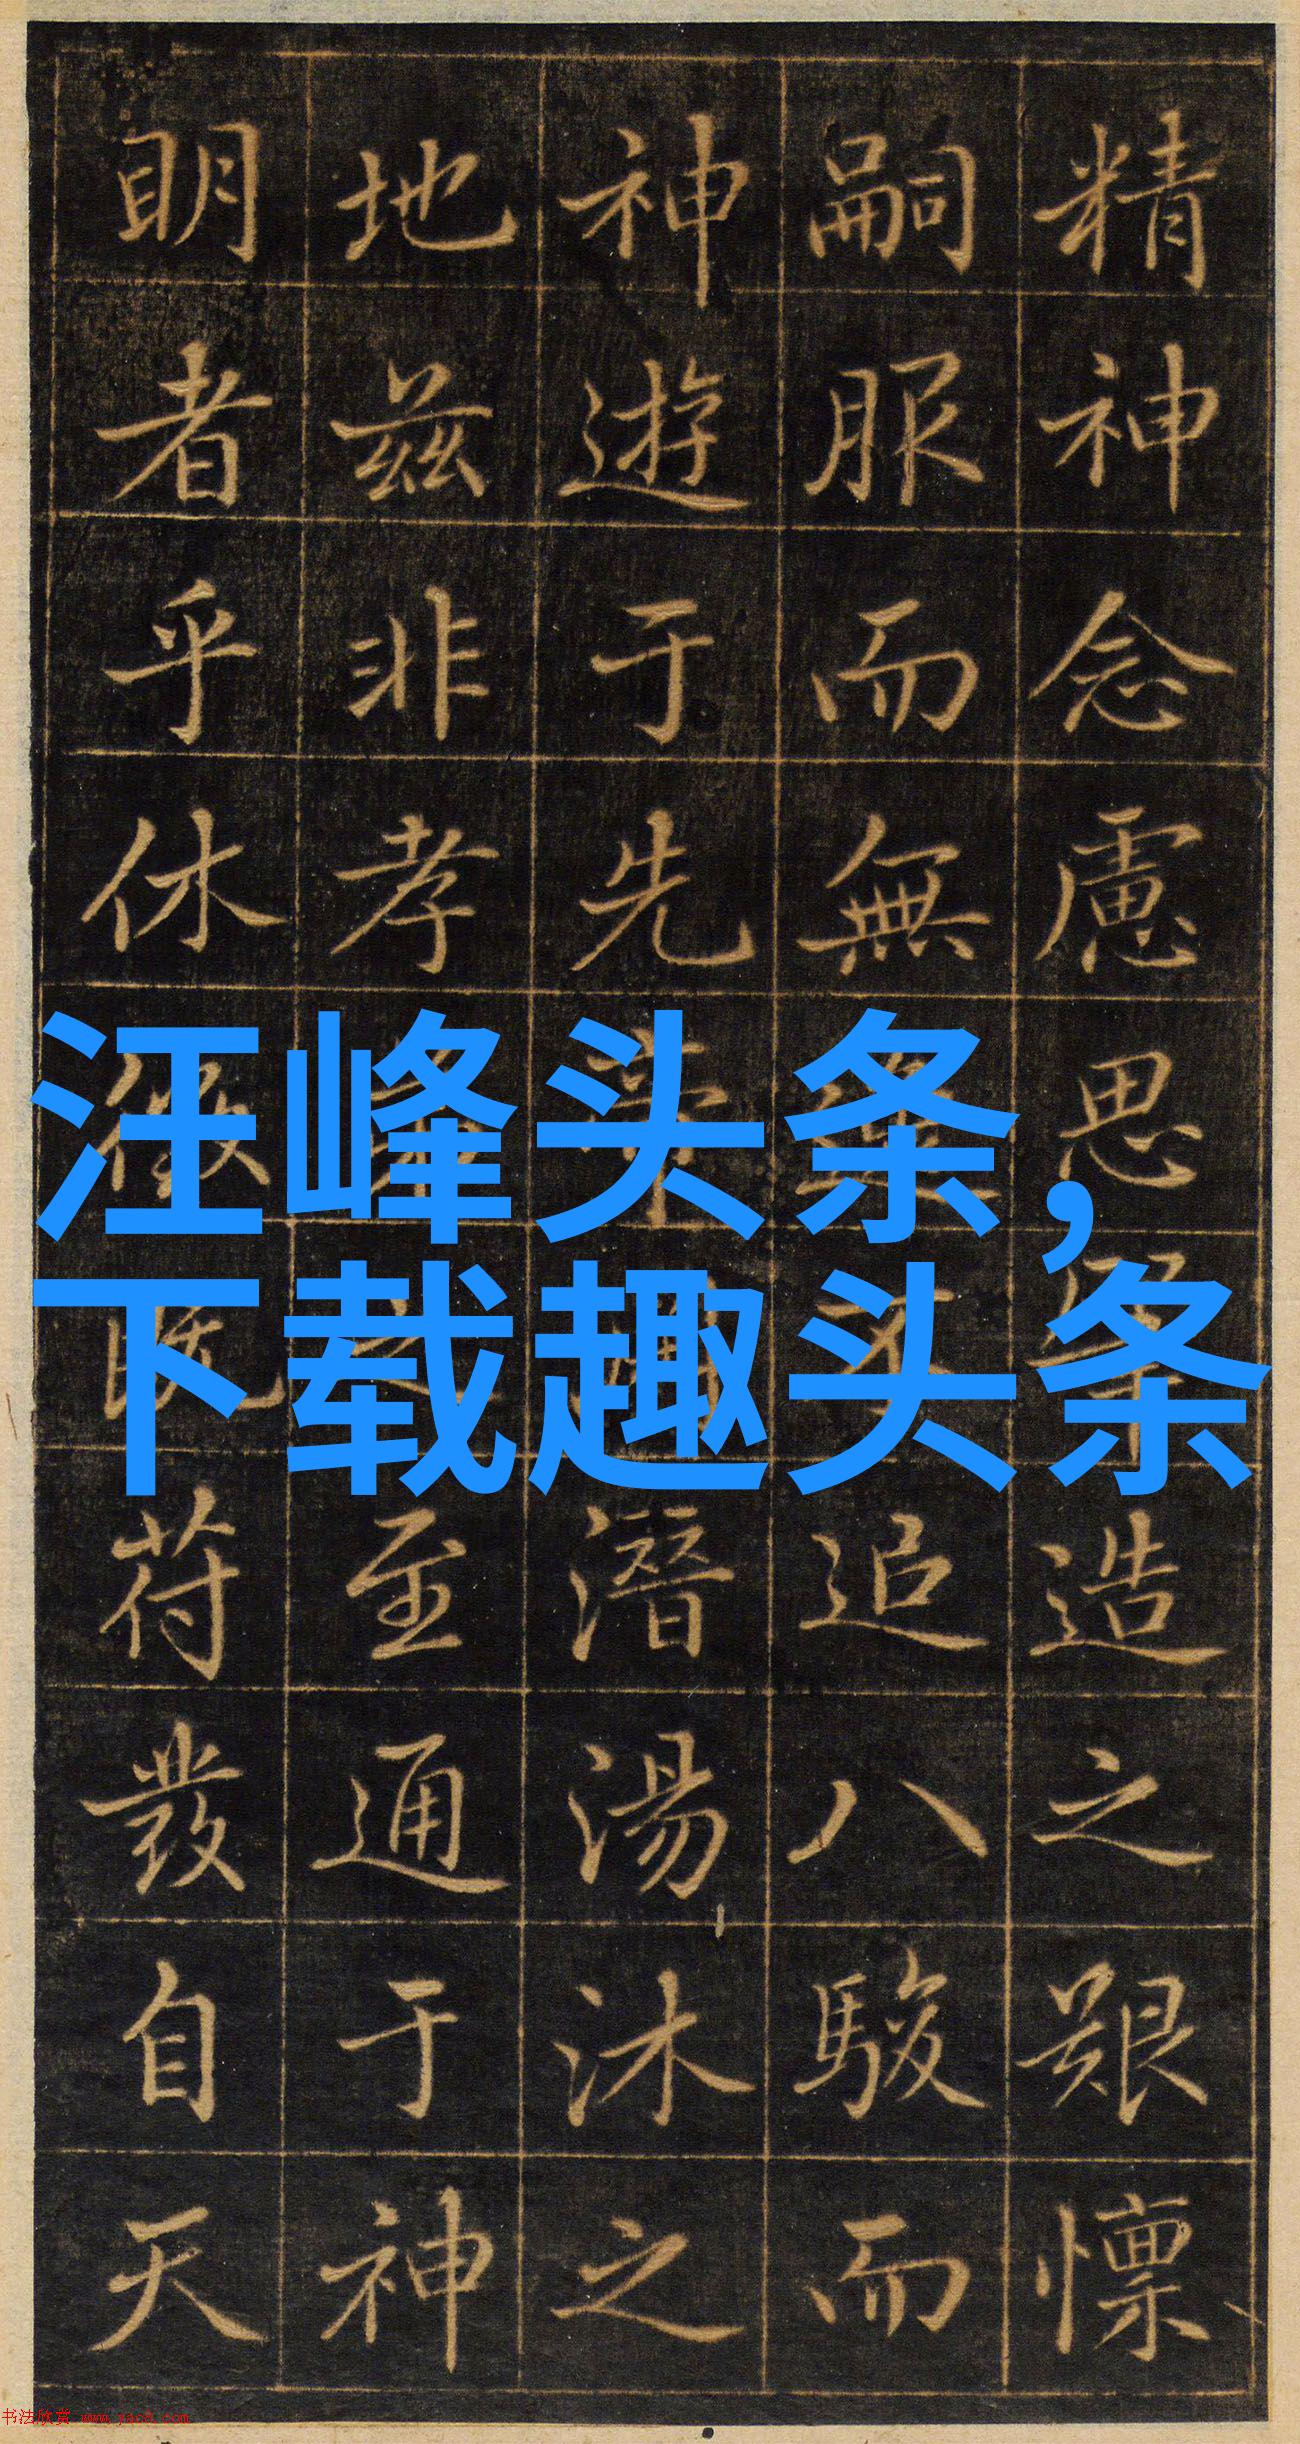 精神念慮思造之艱懍
嗣服而無追八駿而
神遊于先潛湯沐之
地茲非孝之至通于神
明者乎休徵既苻發自天
汪峰头条，
下载趣头条
书法欣赏 www.yac8.com